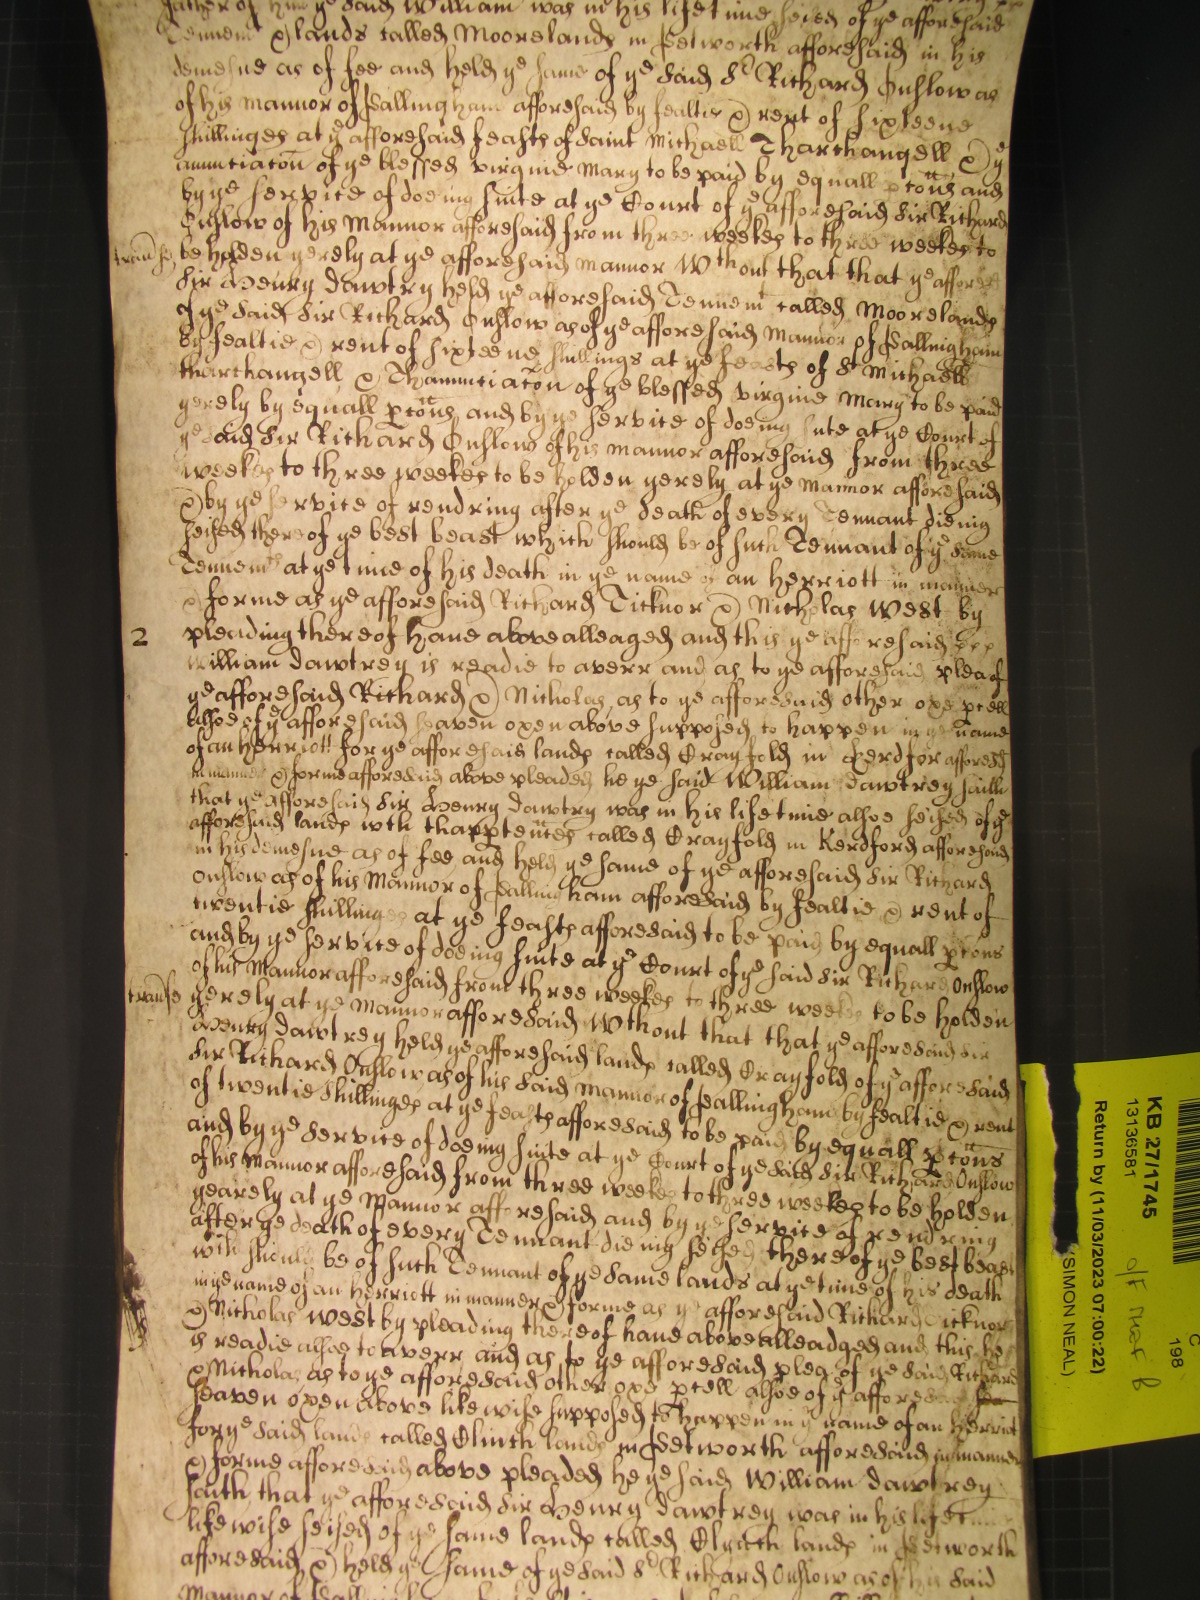 father of him ye said William was in his lifetime seised of ye afforesaid
Tennemt & lands called Moorelands in Petworth afforesaid in his
demesne as of fee and held ye same of ye said Sr Richard Onslow as
of his Mannor of Pallingham afforesaid by fealtie & rent of sixteene
shillinges at ye afforesaid feasts of Saint Michaell Tharchangell & ye
annunciacon of ye blessed virgine Mary to be paid by equall pcons and
by ye service of doeing suite at ye Court of ye afforesaid Sir Richard
Onslow of his Mannor afforesaid from three weekes to three weekes to
be holden yerely at ye afforesaid mannor Wthout that that ye affores
Sir Henry Dawtry held ye afforesaid Tennemt called Moorelands
of ye said Sir Richard Onslow as of ye afforesaid Mannor of Pallingham
by fealtie & rent of sixteene shillings at ye feasts of St Michaell
tharchangell & Thannunciacon of ye blessed virgine Mary to be paid
yerely by equall pcons and by ye service of doeing suite at ye Court of
ye said Sir Richard Onslow of his mannor afforesaid from three
weekes to three weekes to be holden yerely at ye mannor afforesaid
& by ye service of rendring after ye death of every Tennant dieing
seised thereof ye best beast which should be of such Tennant of ye same
Tennemts at ye time of his death in ye name of an herriott in manner
& forme as ye afforesaid Richard Ticknor & Nicholas West by
2 pleading thereof have above alleaged and this ye afforesaid
William Dawtrey is readie to averr and as to ye afforesaid plea of
ye afforesaid Richard & Nicholas as to ye afforesaid other oxe pcell
alsoe of ye afforesaid seaven oxen above supposed to happen in ye name
of an Herriott for ye afforesaid lands called Crayfold in Kerdfor afforesd
in manner & forme afforesaid above pleaded he ye said William Dawtrey saith
that ye afforesaid Sir Henry Dawtry was in his lifetime alsoe seised of ye
afforesaid lands wth thapptences called Crayfold in Kerdford afforesaid
in his demesne as of fee and held ye same of ye afforesaid Sir Richard
Onslow as of his Mannor of Pallingham afforesaid by fealtie & rent of
twentie shillinges at ye feasts afforesaid to be paid by equall pcons
and by ye service of doeing suite at ye Court of ye said Sir Richard Onslow
of his Mannor afforesaid from three weekes to three weekes to be holden
travse yerely at ye Mannor afforesaid Wthout that that ye afforesaid Sir
Henry Dawtrey held ye afforesaid lands called Crayfold of ye afforesaid
Sir Richard Onslow as of his said Mannor of Pallingham by fealtie & rent
of twentie shillinges at ye feasts afforesaid to be paid by equall pcons
and by ye service of doeing suite at ye Court of ye said Sir Richard Onslow
of his Mannor afforesaid from three weekes to three weekes to be holden
yearely at ye Mannor afforesaid and by ye service of rendring
after ye death of every Tennant dieing seised thereof ye best beast
wch should be of such Tennant of ye same lands at ye time of his death
in ye name of an Herriott in manner & forme as ye afforesaid Richard Ticknor
& Nicholas West by pleading thereof have above alleadged and this he
is readie alsoe to averr and as to ye afforesaid plea of ye said Richard
& Nicholas as to ye afforesaid other oxe pcell alsoe of ye afforesaid
seaven oxen above likewise supposed to happen in ye name of an Herriot
for ye said lands called Clinch lands in Petworth afforesaid in manner
& forme afforesaid above pleaded he ye said William Dawtrey
saith that ye afforesaid Sir Henry Dawtrey was in his lifetime
likewise seised of ye same lands called Clynch lands in Petworth
afforesaid & held ye same of ye said Sr Richard Onslow as of his said
KB 27/1745
13136581
Return by (11/03/2023 07:00:22)
(SIMON NEAL)
C
198